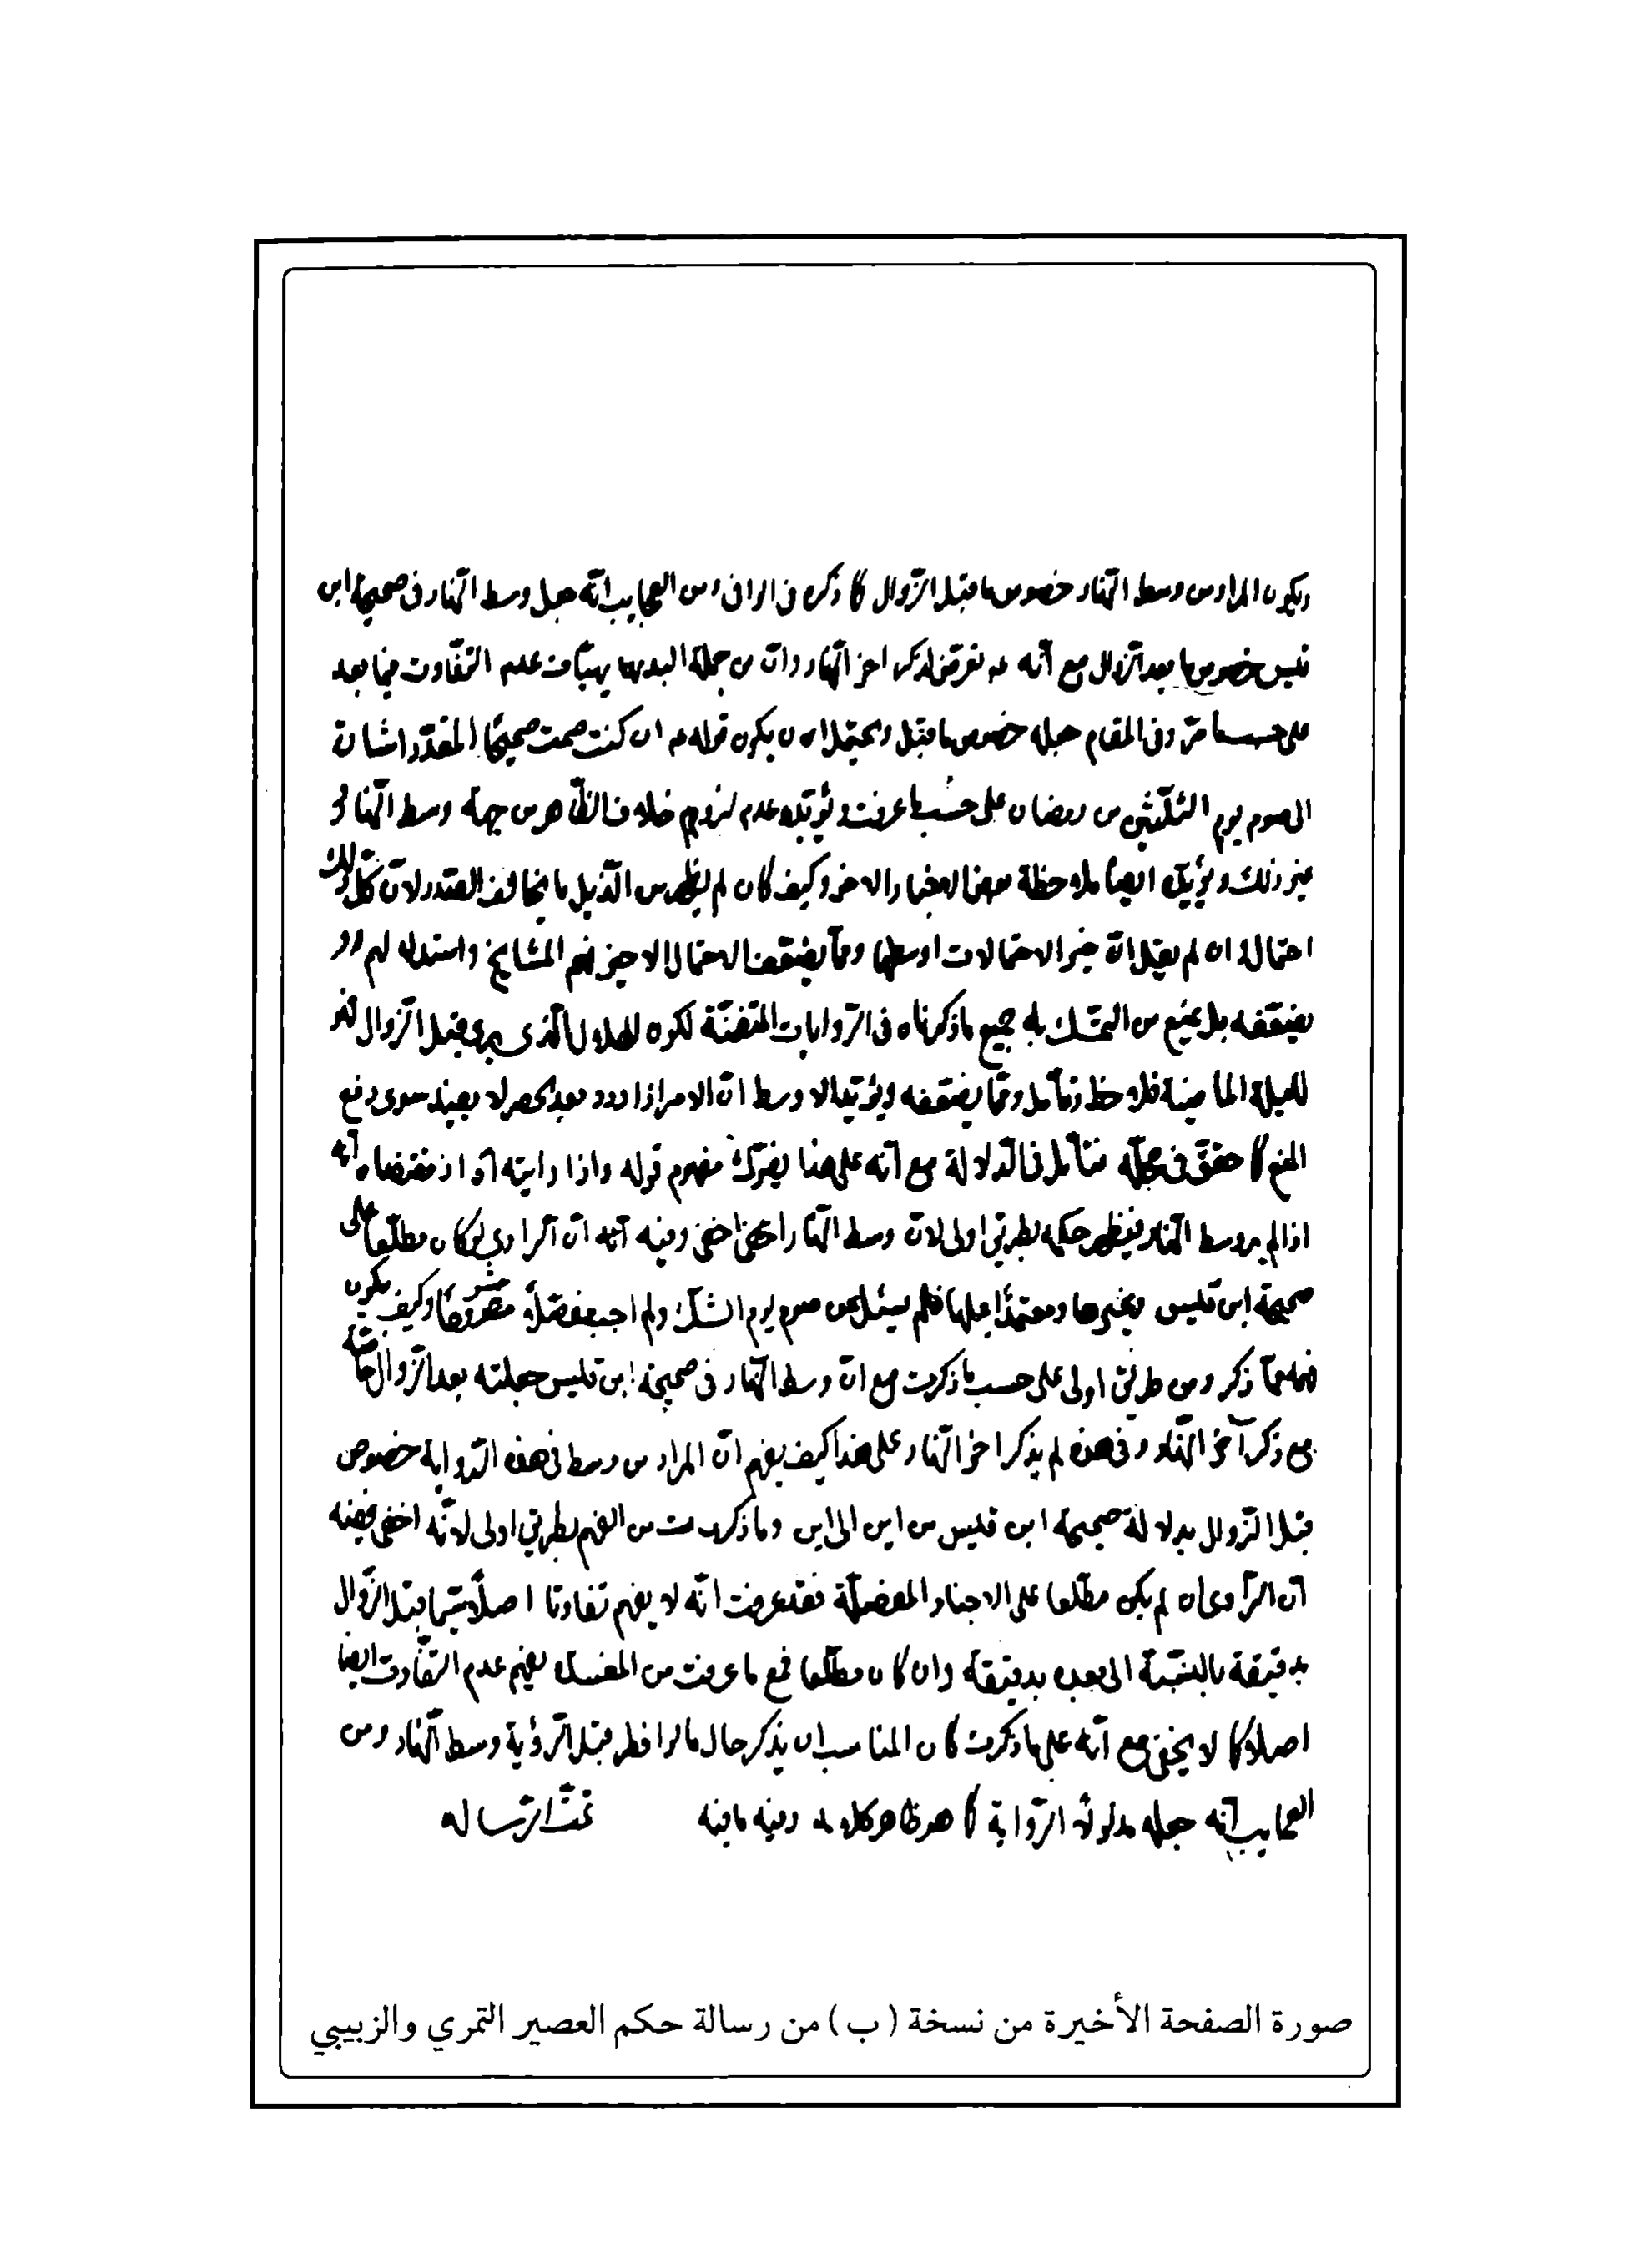 ويكون المراد من وسط النهار خصوص ما قبل الزوال كا ذكره فى الوافى ومن العجايب انّه جعل وسط النهار فى صحيحة ابن
قيس خصوص ما بعد الزوال مع انّه لم تعرض لذكر اخر النهار وانّ من جملة البديهيات عدم التفاوت فيما بعد
على حسب ما مرّ وفى المقام جعله خصوص ما قبل ويحتمل ان يكون قوله ان كنت صمت صحيحًا المقدّر اشارة
الى صوم يوم الثلثين من رمضان على حسب ما عرفت ويؤيّده عدم لزوم خلاف الظاهر من جهة وسط النهار و
غير ذلك ويؤيّده ايضًا ملاحظة بعض الاخبار الاخر وكيف كان لم يظهر من الذيل ما يخالف الصدر لانّ كل ذلك
احتمال ان لم يقل انّ خير الاحتمالات اوسطها وممّا يضعّف الاحتمال الاخير فهم المشايخ واستدلالهم
يضعّفه بل يمنع من التمسّك به جميع ما ذكرناه فى الرّوايات المتضمّنة لكون الهلال الّذى يرى قبل الزوال
لليلة الماضية فلاحظ وتأمل وممّا يضعّفه ويؤيّد الاوسط انّ الامر اذا ورد بعد الحصر لا يفيد سوى رفع
المنع كا حقّق فى محلّه فتأمل فى الدلالة مع انّه على هذا يضرّك مفهوم قوله واذا رايته اه اذ مقتضاه انّه
اذا لم ير وسط النهار فيظهر حكمه بطريق اولى لانّ وسط النهار اخفى وفيه انّه انّ الراوى لو كان مطّلعا على
صحيحة ابن قيس وغيرها ومعتمدًا عليها فلم يسئل عن صوم يوم الشكّ ولم اجيب مفصّلاً مشروحًا وكيف يكون
فهمه ممّا ذكر ومن طريق اولى على حسب ما ذكرت مع انّ وسط النهار فى صحيحة ابن قيس جعلته بعد الزوال خاصّة
مع ذكر آخر النهار وفى هذه لم يذكر اخر النهار وعلى هذا كيف يفهم انّ المراد من وسط فى هذه الرواية خصوص
قبل الزوال بدلالة صحيحة ابن قيس من اين الى اين وما ذكرت من الفهم بطريق اولى لانّه اخفى ففيه
انّ الرّاوى ان لم يكن مطّلعا على الاخبار المفصّلة فقد عرفت انّه لا يفهم تفاوتا اصلاً سيّما قبل الزّوال
بدقيقة بالنسبة الى بعده بدقيقة وان كان مطّلعا فمع ما عرفت من المفسدة يفهم عدم التفاوت ايضا
اصلا كا لا يخفى مع انّه على ما ذكرت كان المناسب ان يذكر حال ما لو افطر قبل الرؤية وسط النهار ومن
العجايب انّه جعله مدلول الرّواية كا هو ظاهر كلامه وفيه ما فيه تمّت الرّساله
صورة الصفحة الأخيرة من نسخة (ب) من رسالة حكم العصير التمري والزبيبي